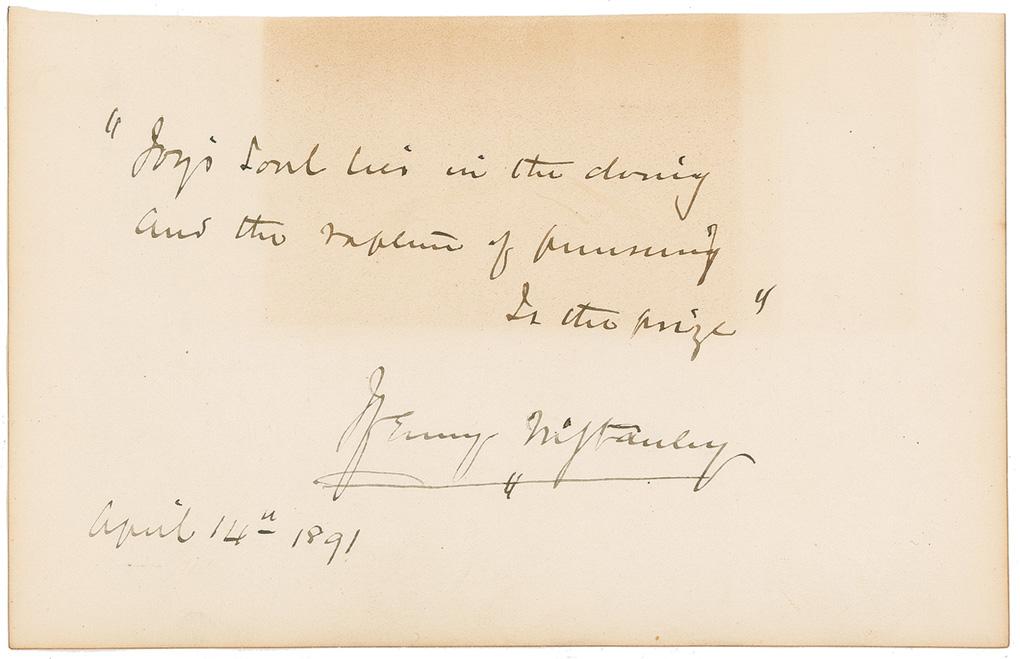 "Joy's Soul lies in the doing
And the rapture of pursuing
Is the prize"
Henry M Stanley
April 14th 1891